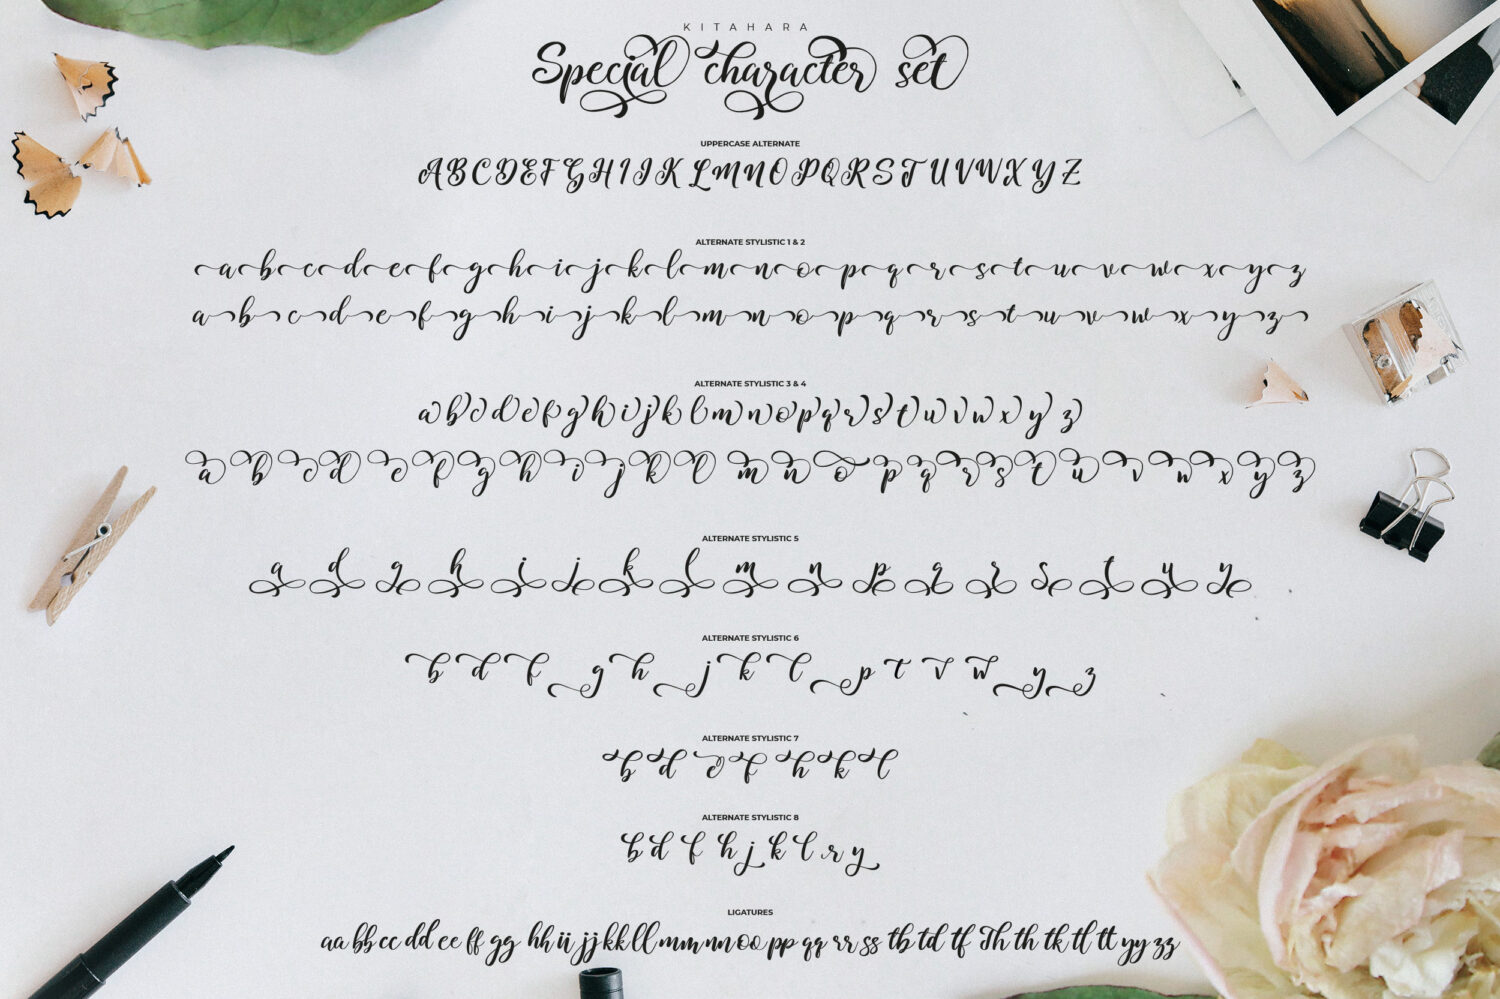 KITAHARA
Special character set
UPPERCASE ALTERNATE
A B C D E F G H I J K L M N O P Q R S T U V W X Y Z
ALTERNATE STYLISTIC 1 & 2
a b c d e f g h i j k l m n o p q r s t u v w x y z
a b c d e f g h i j k l m n o p q r s t u v w x y z
ALTERNATE STYLISTIC 3 & 4
a b c d e f g h i j k l m n o p q r s t u v w x y z
a b c d e f g h i j k l m n o p q r s t u v w x y z
ALTERNATE STYLISTIC 5
a d g h i j k l m n p q r s t u y
ALTERNATE STYLISTIC 6
b d f g h j k l p t v w y z
ALTERNATE STYLISTIC 7
b d e f h k l
ALTERNATE STYLISTIC 8
b d f h j k l r y
LIGATURES
aa bb cc dd ee ff gg hh ii jj kk ll mm nn oo pp qq rr ss tb td tf Th th tk tl tt yy zz